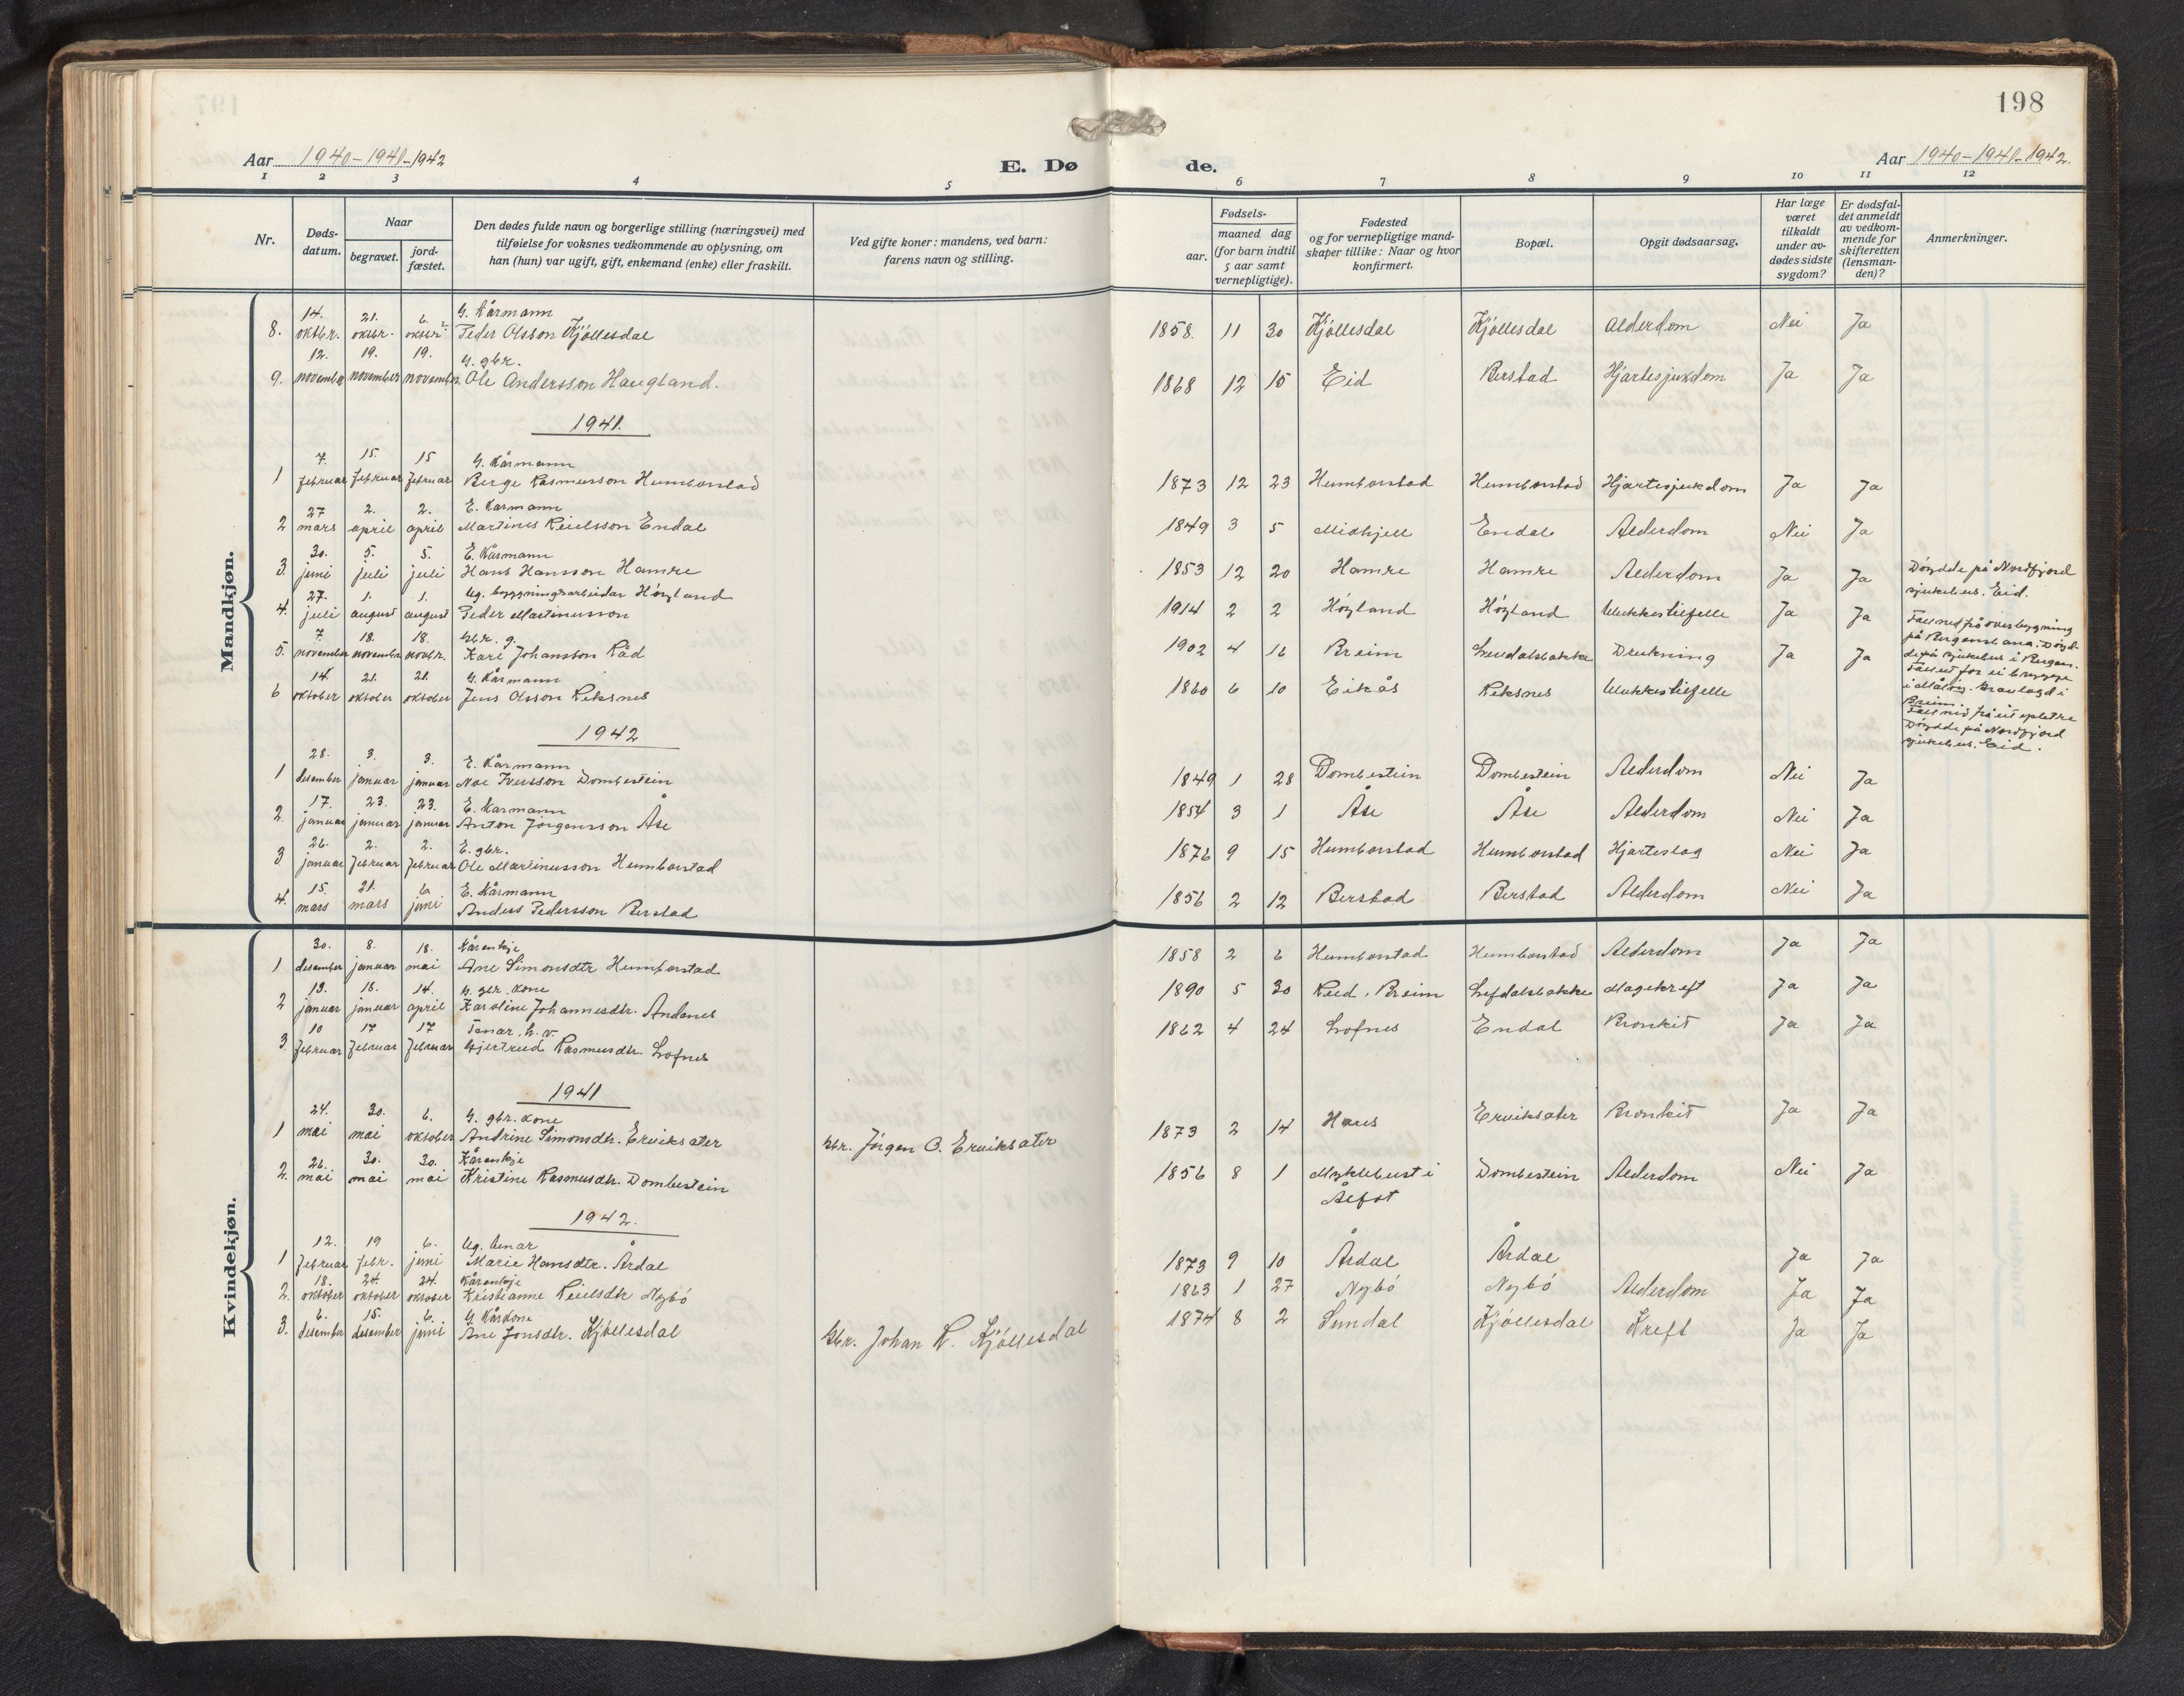 198
Aar 1940-1941-1942
E. Dø de.
Aar 1940-1941-1942.
1 2 3 4 5 6 7 8 9 10 11 12
Nr.
Døds-
datum.
Naar
begravet.
jord-
fæstet.
Den dødes fulde navn og borgerlige stilling (næringsvei) med
tilføielse for voksnes vedkommende av oplysning, om
han (hun) var ugift, gift, enkemand (enke) eller fraskilt.
Ved gifte koner: mandens, ved barn:
farens navn og stilling.
Fødsels-
aar.
maaned dag
(for barn indtil
5 aar samt
vernepligtige).
Fødested
og for vernepligtige mand-
skaper tillike: Naar og hvor
konfirmert.
Bopæl.
Opgit dødsaarsag.
Har læge
været
tilkaldt
under av-
dødes sidste
sygdom?
Er dødsfal-
det anmeldt
av vedkom-
mende for
skifteretten
(lensman-
den)?
Anmerkninger.
Mandkjøn.
14. 21. 6. G. Kårmann
8. oktbr. oktbr. oktbr. Peder Olsson Kjöllesdal 1858. 11 30 Kjöllesdal Kjöllesdal Alderdom Nei Ja
12. 19. 19. G. gbr.
9. november november november. Ole Andersson Haugland. 1868 12 15 Eid Berstad Hjartesjukdom Ja Ja
1941.
7. 15. 15 G. Kårmann
1 februar februar februar Berge Rasmusson Humborstad 1873 12 23 Humborstad Humborstad Hjartesjukdom Ja Ja
27 2. 2. E. Kårmann
2 mars april april Martinus Reielsson Endal 1849 3 5 Midhjell Endal Alderdom Nei Ja
30. 5. 5. E. Kårmann
3. juni juli juli Hans Hansson Hamre 1853 12 20 Hamre Hamre Alderdom Ja Ja Döydde på Nordfjord
sjukehus. Eid.
27. 1. 1. Ug. bygningsarbeidar Höyland
4. juli august august Peder Martinusson 1914 2 2 Höyland Höyland Ulukkestilfelle Ja Ja Fall ned frå overbygning
på Bergensbana. Döyd-
de på sjukehus i Bergen.
7. 18. 18. Gbr. g.
5. november november novbr. Karl Johansson Råd 1902 4 16 Breim Drukning Ja Ja Fall ut for ei bryggje
i Måløy. Gravlagd i
Breim.
14. 21. 21. G. Kårmann
6 oktober oktober oktober Jens Olsson Reksnes 1860 6 10 Eikås Reksnes Ulukkestilfelle Fall ned frå eit epletre
Döydde på Nordfjord
sjukehus. Eid.
1942
28. 3. 3. E. Kårmann
1 desember januar januar Noe Iversson Dombestein 1849 1 28 Dombestein Dombestein Alderdom Nei Ja
17. 23. 23. E. Kårmann
2. januar januar januar Anton Jörgensson Åse 1854 3 1 Åse Åse Alderdom Nei Ja
26. 2. 2. E. gbr.
3 januar februar februar Ole Martinusson Humborstad 1876 9 15 Humborstad Humborstad Hjarteslag Nei Ja
15. 21. 6 E. Kårmann
4. mars mars juni Anders Pedersson Berstad 1856 2 12 Berstad Berstad Alderdom Nei Ja
Kvindekjøn.
30. 8. 18. Kårenkje
1 desember januar mai Ane Simonsdtr Humborstad 1858 2 6 Humborstad Humborstad Alderdom Ja Ja
13. 18. 14. G. gbr. kone
2 januar januar april Karoline Johannesdtr. Andenes 1890 5 30 Reed, Breim Lefdalsbakke Magekreft Ja Ja
10 17 17 Tenar. h. v.
3. februar februar februar Gjertrud Rasmusdtr. Lofnes 1862 4 24 Lofnes Endal Bronkit Ja Ja
1941
24. 30. 6. G. gbr. kone
1 mai mai oktober Andrine Simonsdtr. Erviksater Gbr. Jörgen O. Erviksater 1873 2 14 Haus Erviksater Bronkit Ja Ja
26. 30. 30. Kårenkje
2. mai mai mai Kristine Rasmusdtr. Dombestein 1856 8 1 Myklebust i
Ålfot Dombestein Alderdom Nei Ja
1942.
12. 19 6. Ug. tenar
1 februar febr. juni Marie Hansdtr. Årdal 1873 9 10 Årdal Årdal Ja Ja
18. 24. 24. Kårenkje
2. oktober oktober oktober Kristianne Reielsdtr Nybö 1863 1 27 Nybö Nybö Alderdom Ja Ja
6. 15. 6. G. Kårkone
3. desember desember juni Ane Jonsdtr. Kjöllesdal Gbr. Johan R. Kjöllesdal 1874 8 2 Sundal Kjöllesdal Kreft Ja Ja